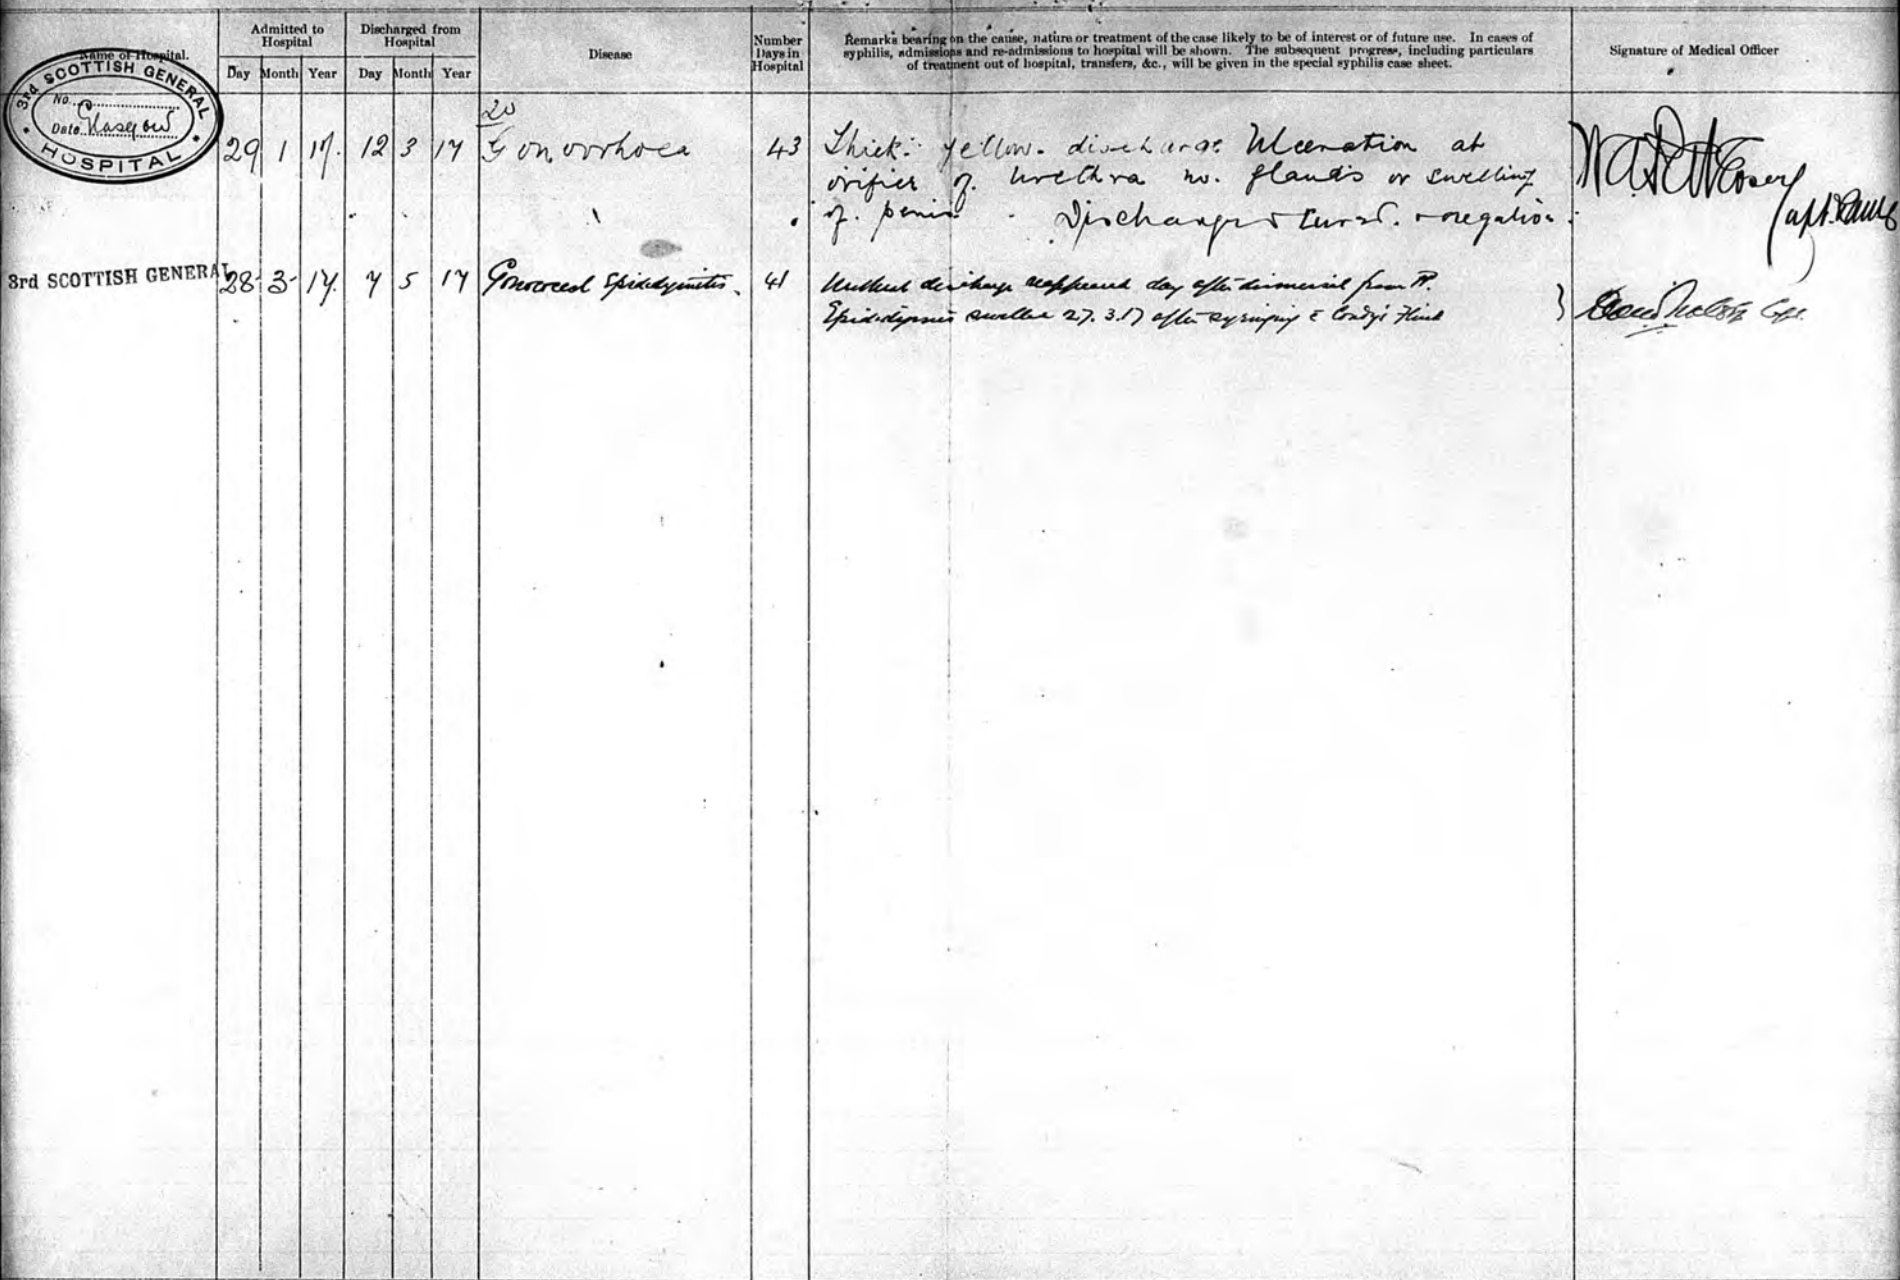 Name of Hospital.
Admitted to Hospital
Discharged from Hospital
Disease
Number Days in Hospital
Remarks bearing on the cause, nature or treatment of the case likely to be of interest or of future use. In cases of
syphilis, admissions and re-admissions to hospital will be shown. The subsequent progress, including particulars
of treatment out of hospital, transfers, &c., will be given in the special syphilis case sheet.
Signature of Medical Officer
Day Month Year Day Month Year
3rd SCOTTISH GENERAL
No.
Date Glasgow
HOSPITAL
20
29 1 17. 12 3 17 Gonorrhoea 43 Thick. yellow. discharge Ulceration at
orifice of. urethra no. glands or swelling
of. penis Discharged Cured.
Capt.
3rd SCOTTISH GENERAL 28 3 17. 7 5 17 Gonococcal Epididymitis. 41 Urethral discharge reappeared day after dismissal from H.
Epididymis swelled 27.3.17 after syringing c Condy's Fluid
Capt.